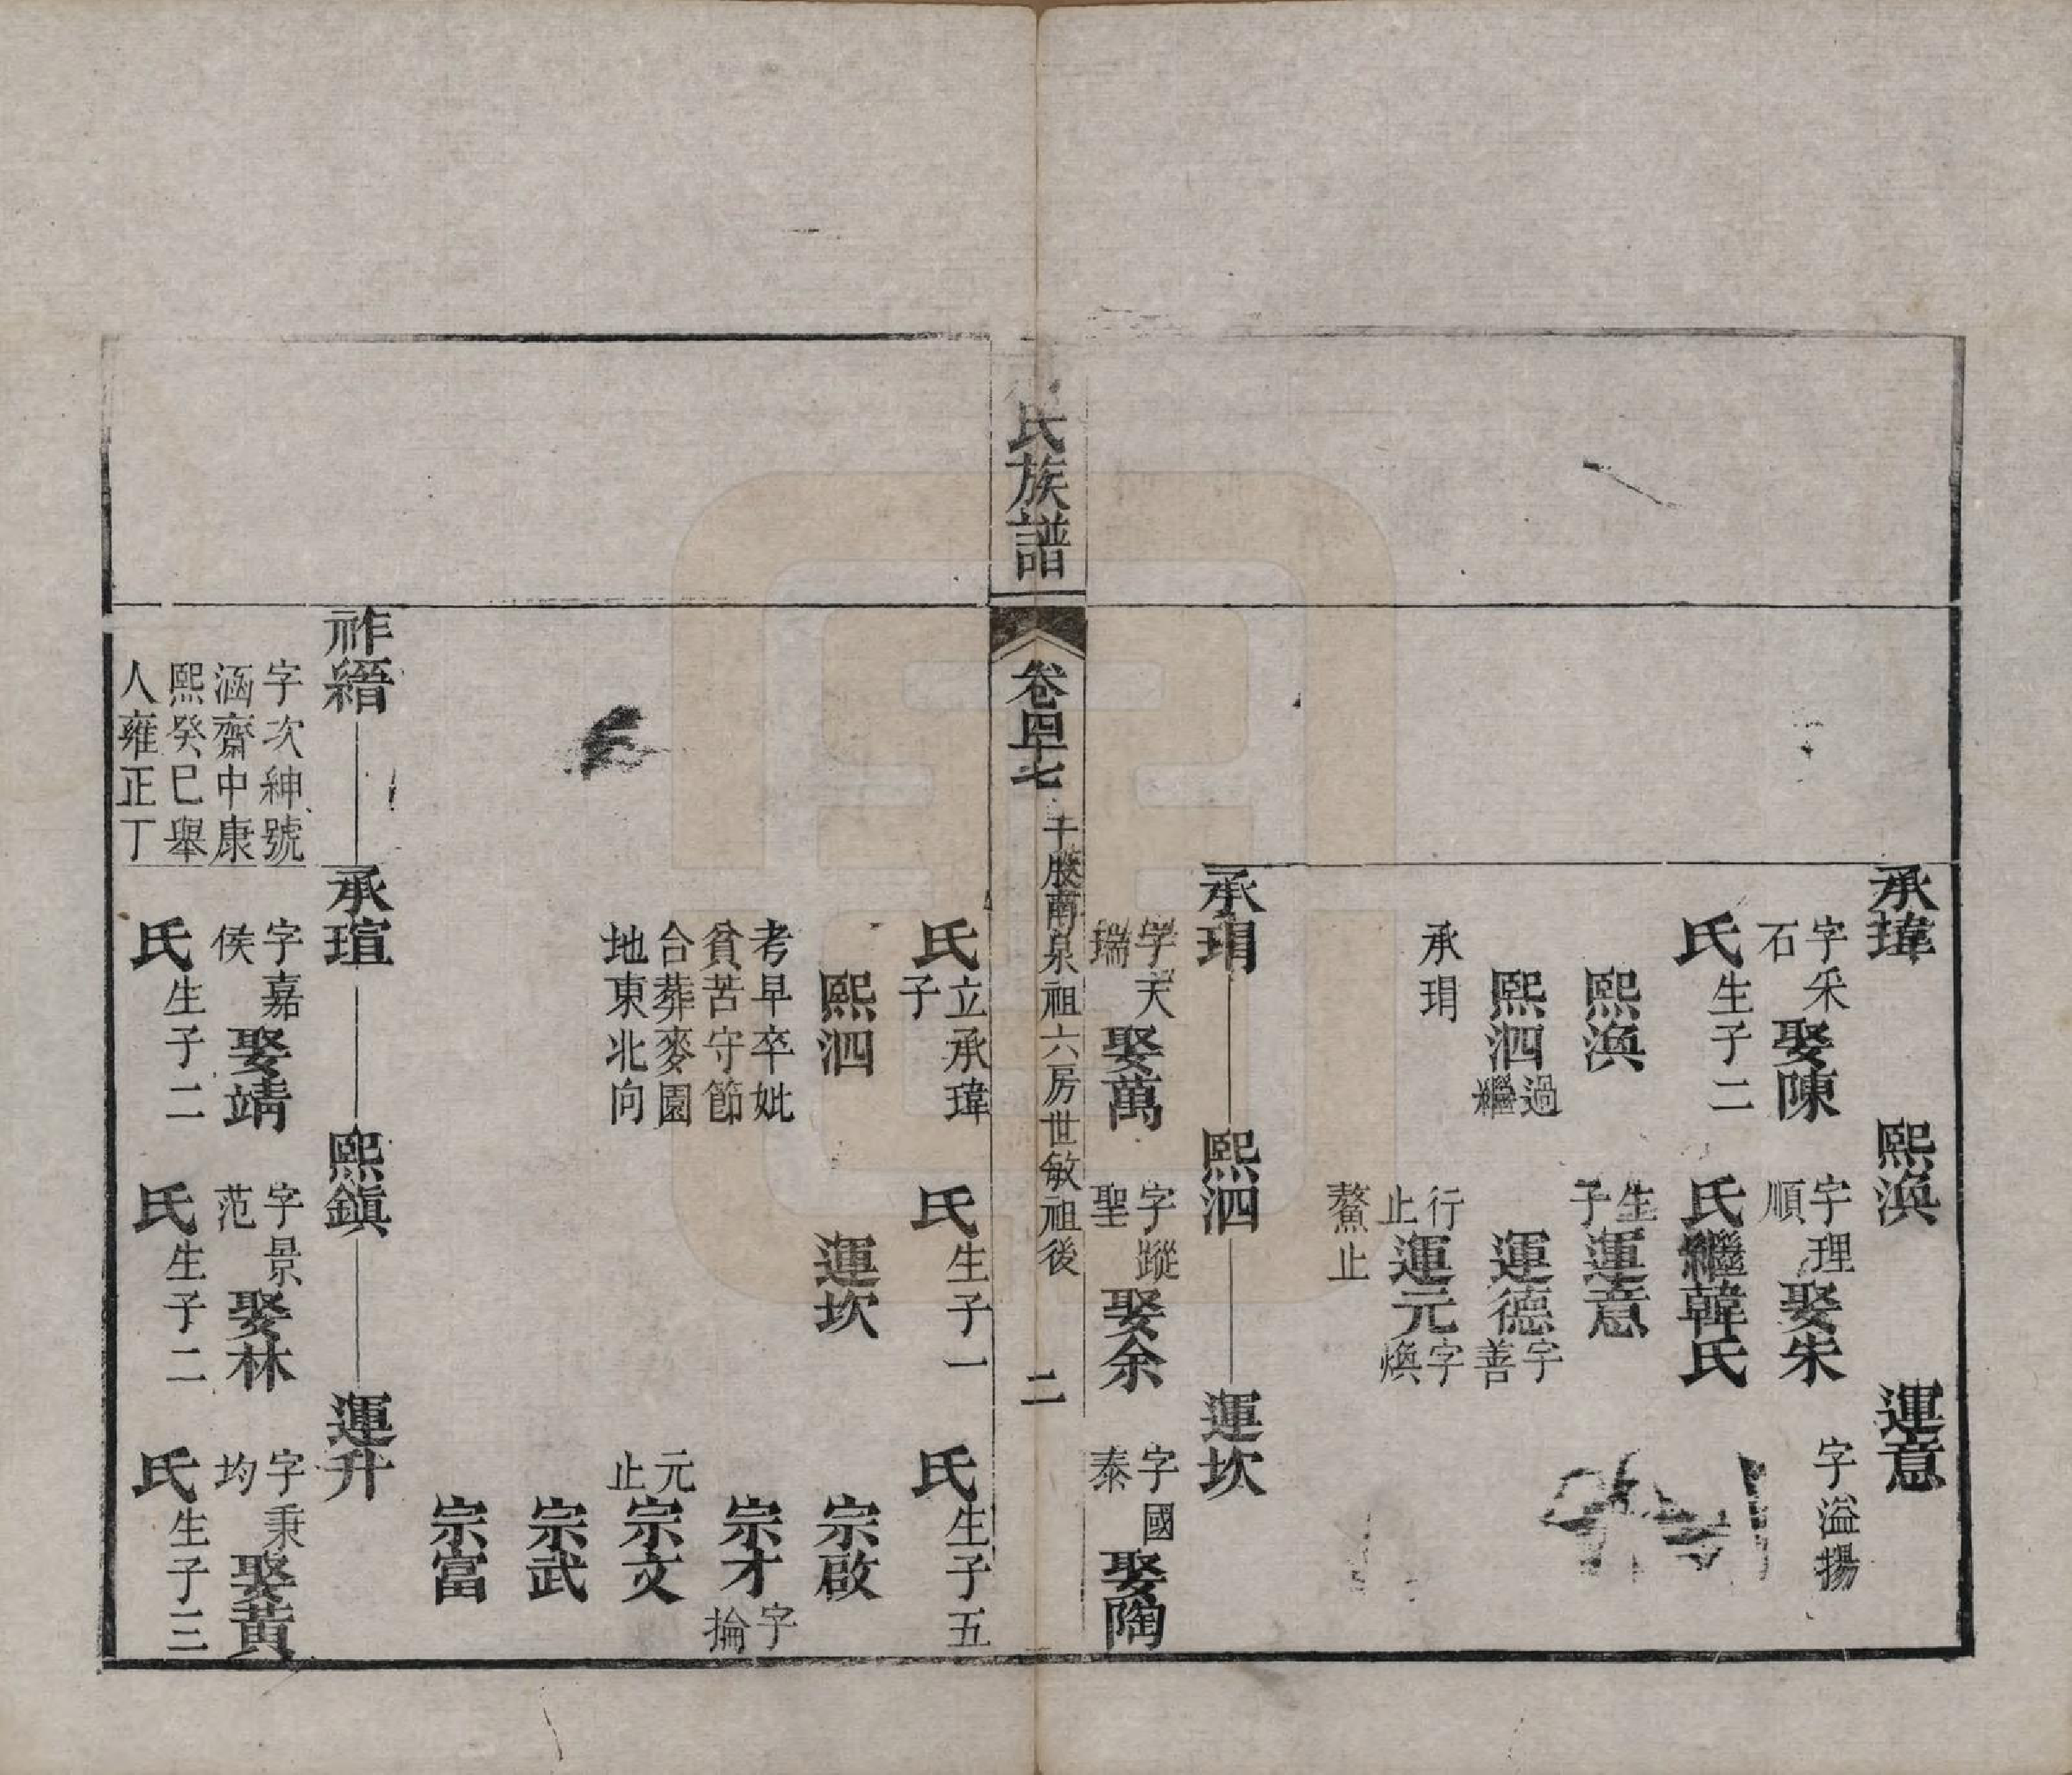 承瑋
字采
石
娶陳
氏生子二
熙澳
熙泗過
繼
承琄
熙澳
字理
順
娶朱
氏繼韓氏
生
子
運意
運德字
善
行
止
運元字
煥
鰲止
運意
字溢揚
承琄
字天
瑞
娶萬
氏立承瑋
子
熙泗
考早卒妣
貧苦守節
合葬麥園
地東北向
熙泗
字蹤
聖
娶余
氏生子一
運坎
運坎
字國
泰
娶陶
氏生子五
宗啟
宗才字
掄
元
止
宗文
宗武
宗富
氏族譜
卷四十七
千股南泉祖六房世敏祖後
二
祚縉
字次紳號
涵齋中康
熙癸巳舉
人雍正丁
承瑄
字嘉
侯
娶靖
氏生子二
熙鎭
字景
范
娶林
氏生子二
運升
字秉
均
娶黃
氏生子三